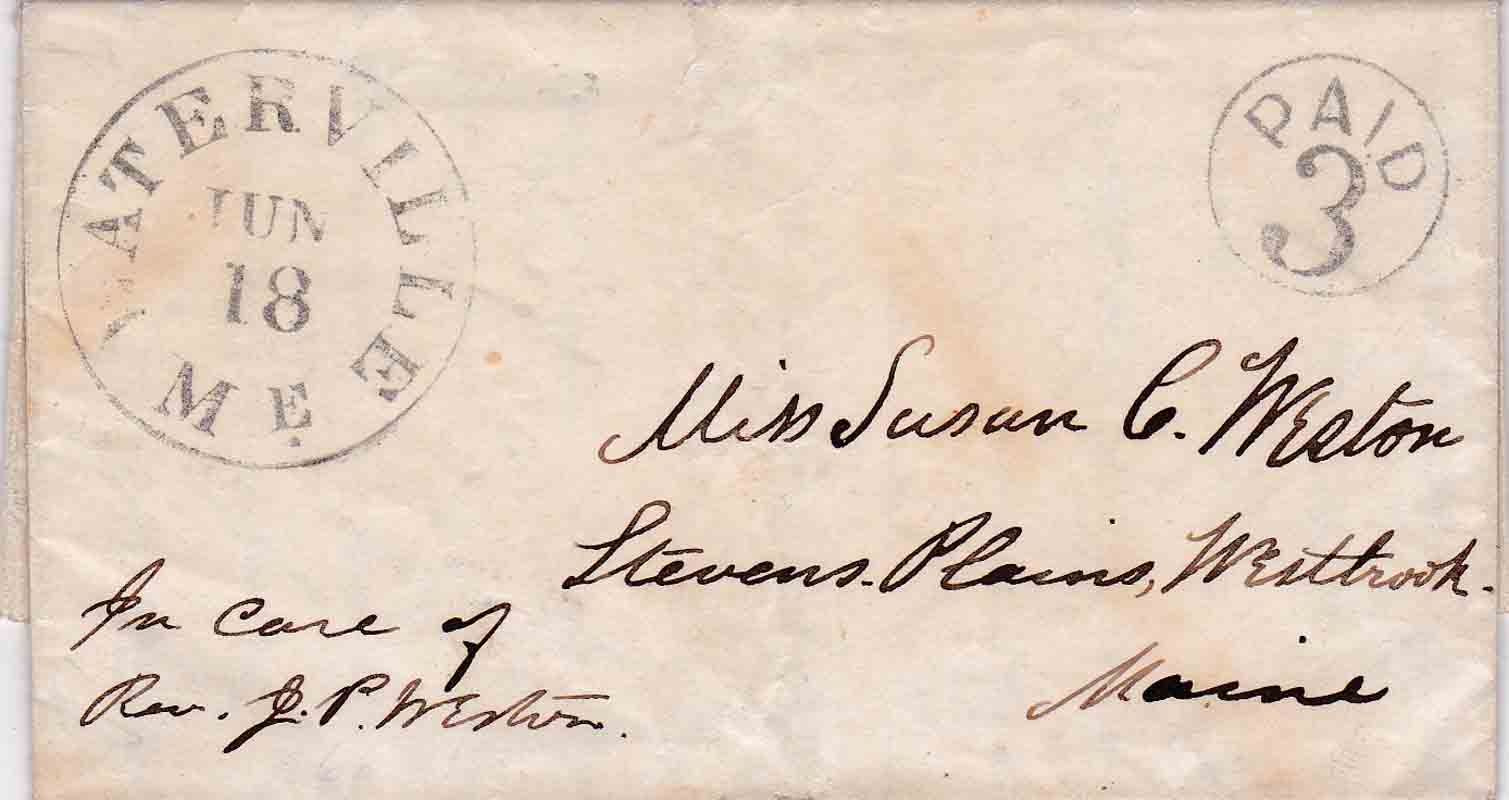 WATERVILLE
JUN
18
ME.
PAID
3
Miss Susan C. Weston
Stevens. Plains, Westbrook.
Maine
In care of
Rev. J. P. Weston.